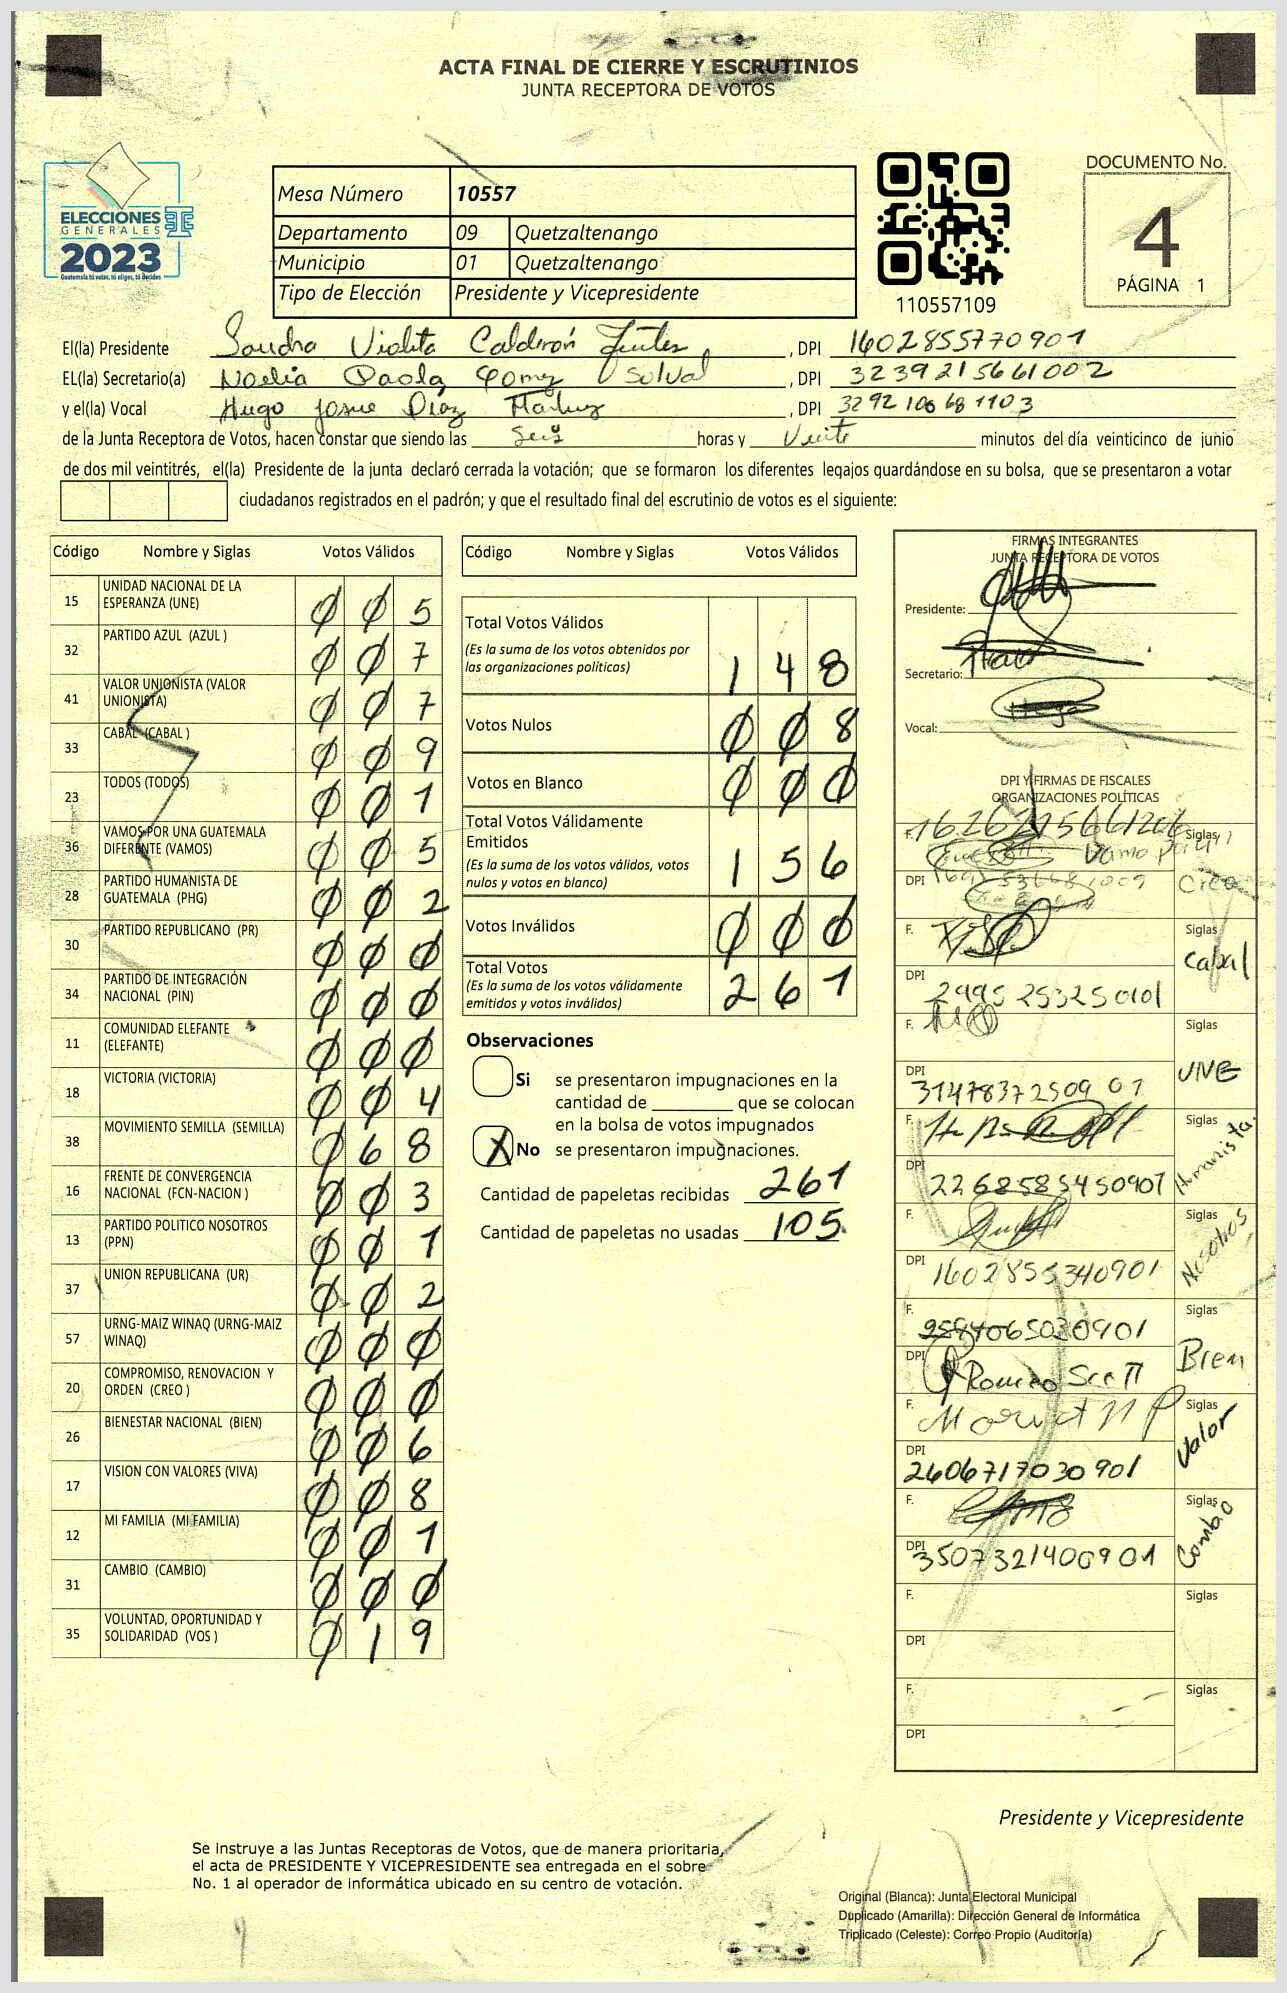 ACTA FINAL DE CIERRE Y ESCRUTINIOS
JUNTA RECEPTORA DE VOTOS
ELECCIONES
GENERALES
2023
Guatemala tú votas, tú eliges, tú decides
Mesa Número 10557
Departamento 09 Quetzaltenango
Municipio 01 Quetzaltenango
Tipo de Elección Presidente y Vicepresidente
110557109
DOCUMENTO No.
4
PÁGINA 1
El(la) Presidente Sandra Violeta Calderón Fuentes, DPI 1602855770901
EL(la) Secretario(a) Noelia Paola Gomez Solval, DPI 3239215661002
y el(la) Vocal Hugo Josue Díaz Martinez, DPI 3292100681103
de la Junta Receptora de Votos, hacen constar que siendo las Seis horas y Veinte minutos del día veinticinco de junio
de dos mil veintitrés, el(la) Presidente de la junta declaró cerrada la votación; que se formaron los diferentes legajos quardándose en su bolsa, que se presentaron a votar
ciudadanos registrados en el padrón; y que el resultado final del escrutinio de votos es el siguiente:
Código Nombre y Siglas Votos Válidos
15 UNIDAD NACIONAL DE LA ESPERANZA (UNE) 0 0 5
32 PARTIDO AZUL (AZUL ) 0 0 7
41 VALOR UNIONISTA (VALOR UNIONISTA) 0 0 7
33 CABAL (CABAL ) 0 0 9
23 TODOS (TODOS) 0 0 1
36 VAMOS POR UNA GUATEMALA DIFERENTE (VAMOS) 0 0 5
28 PARTIDO HUMANISTA DE GUATEMALA (PHG) 0 0 2
30 PARTIDO REPUBLICANO (PR) 0 0 0
34 PARTIDO DE INTEGRACIÓN NACIONAL (PIN) 0 0 0
11 COMUNIDAD ELEFANTE (ELEFANTE) 0 0 0
18 VICTORIA (VICTORIA) 0 0 4
38 MOVIMIENTO SEMILLA (SEMILLA) 0 6 8
16 FRENTE DE CONVERGENCIA NACIONAL (FCN-NACION ) 0 0 3
13 PARTIDO POLITICO NOSOTROS (PPN) 0 0 1
37 UNION REPUBLICANA (UR) 0 0 2
57 URNG-MAIZ WINAQ (URNG-MAIZ WINAQ) 0 0 0
20 COMPROMISO, RENOVACION Y ORDEN (CREO ) 0 0 0
26 BIENESTAR NACIONAL (BIEN) 0 0 6
17 VISION CON VALORES (VIVA) 0 0 8
12 MI FAMILIA (MI FAMILIA) 0 0 1
31 CAMBIO (CAMBIO) 0 0 0
35 VOLUNTAD, OPORTUNIDAD Y SOLIDARIDAD (VOS ) 0 1 9
Código Nombre y Siglas Votos Válidos
Total Votos Válidos 1 4 8
(Es la suma de los votos obtenidos por
las organizaciones políticas)
Votos Nulos 0 0 8
Votos en Blanco 0 0 0
Total Votos Válidamente
Emitidos 1 5 6
(Es la suma de los votos válidos, votos
nulos y votos en blanco)
Votos Inválidos 0 0 0
Total Votos 2 6 1
(Es la suma de los votos válidamente
emitidos y votos inválidos)
Observaciones
Si se presentaron impugnaciones en la
cantidad de ________ que se colocan
en la bolsa de votos impugnados
X No se presentaron impugnaciones.
Cantidad de papeletas recibidas 261
Cantidad de papeletas no usadas 105
FIRMAS INTEGRANTES
JUNTA RECEPTORA DE VOTOS
Presidente:
Secretario:
Vocal:
DPI Y FIRMAS DE FISCALES
ORGANIZACIONES POLÍTICAS
F. Siglas
DPI Creo
F. Siglas
Cabal
DPI 2995 25325 0101
F. Siglas
UNE
DPI 3147837250901
F. Siglas
Humanista.
DPI 2268585450907
F. Siglas
Nosotros
DPI 1602855340901
F. 2584065030901 Siglas
Bien
DPI Romeo Scott
F. Siglas
Valor
DPI 2606717030901
F. Siglas
DPI 3507321400901
F. Siglas
DPI
F. Siglas
DPI
Presidente y Vicepresidente
Se instruye a las Juntas Receptoras de Votos, que de manera prioritaria,
el acta de PRESIDENTE Y VICEPRESIDENTE sea entregada en el sobre
No. 1 al operador de informática ubicado en su centro de votación.
Original (Blanca): Junta Electoral Municipal
Duplicado (Amarilla): Dirección General de Informática
Triplicado (Celeste): Correo Propio (Auditoría)